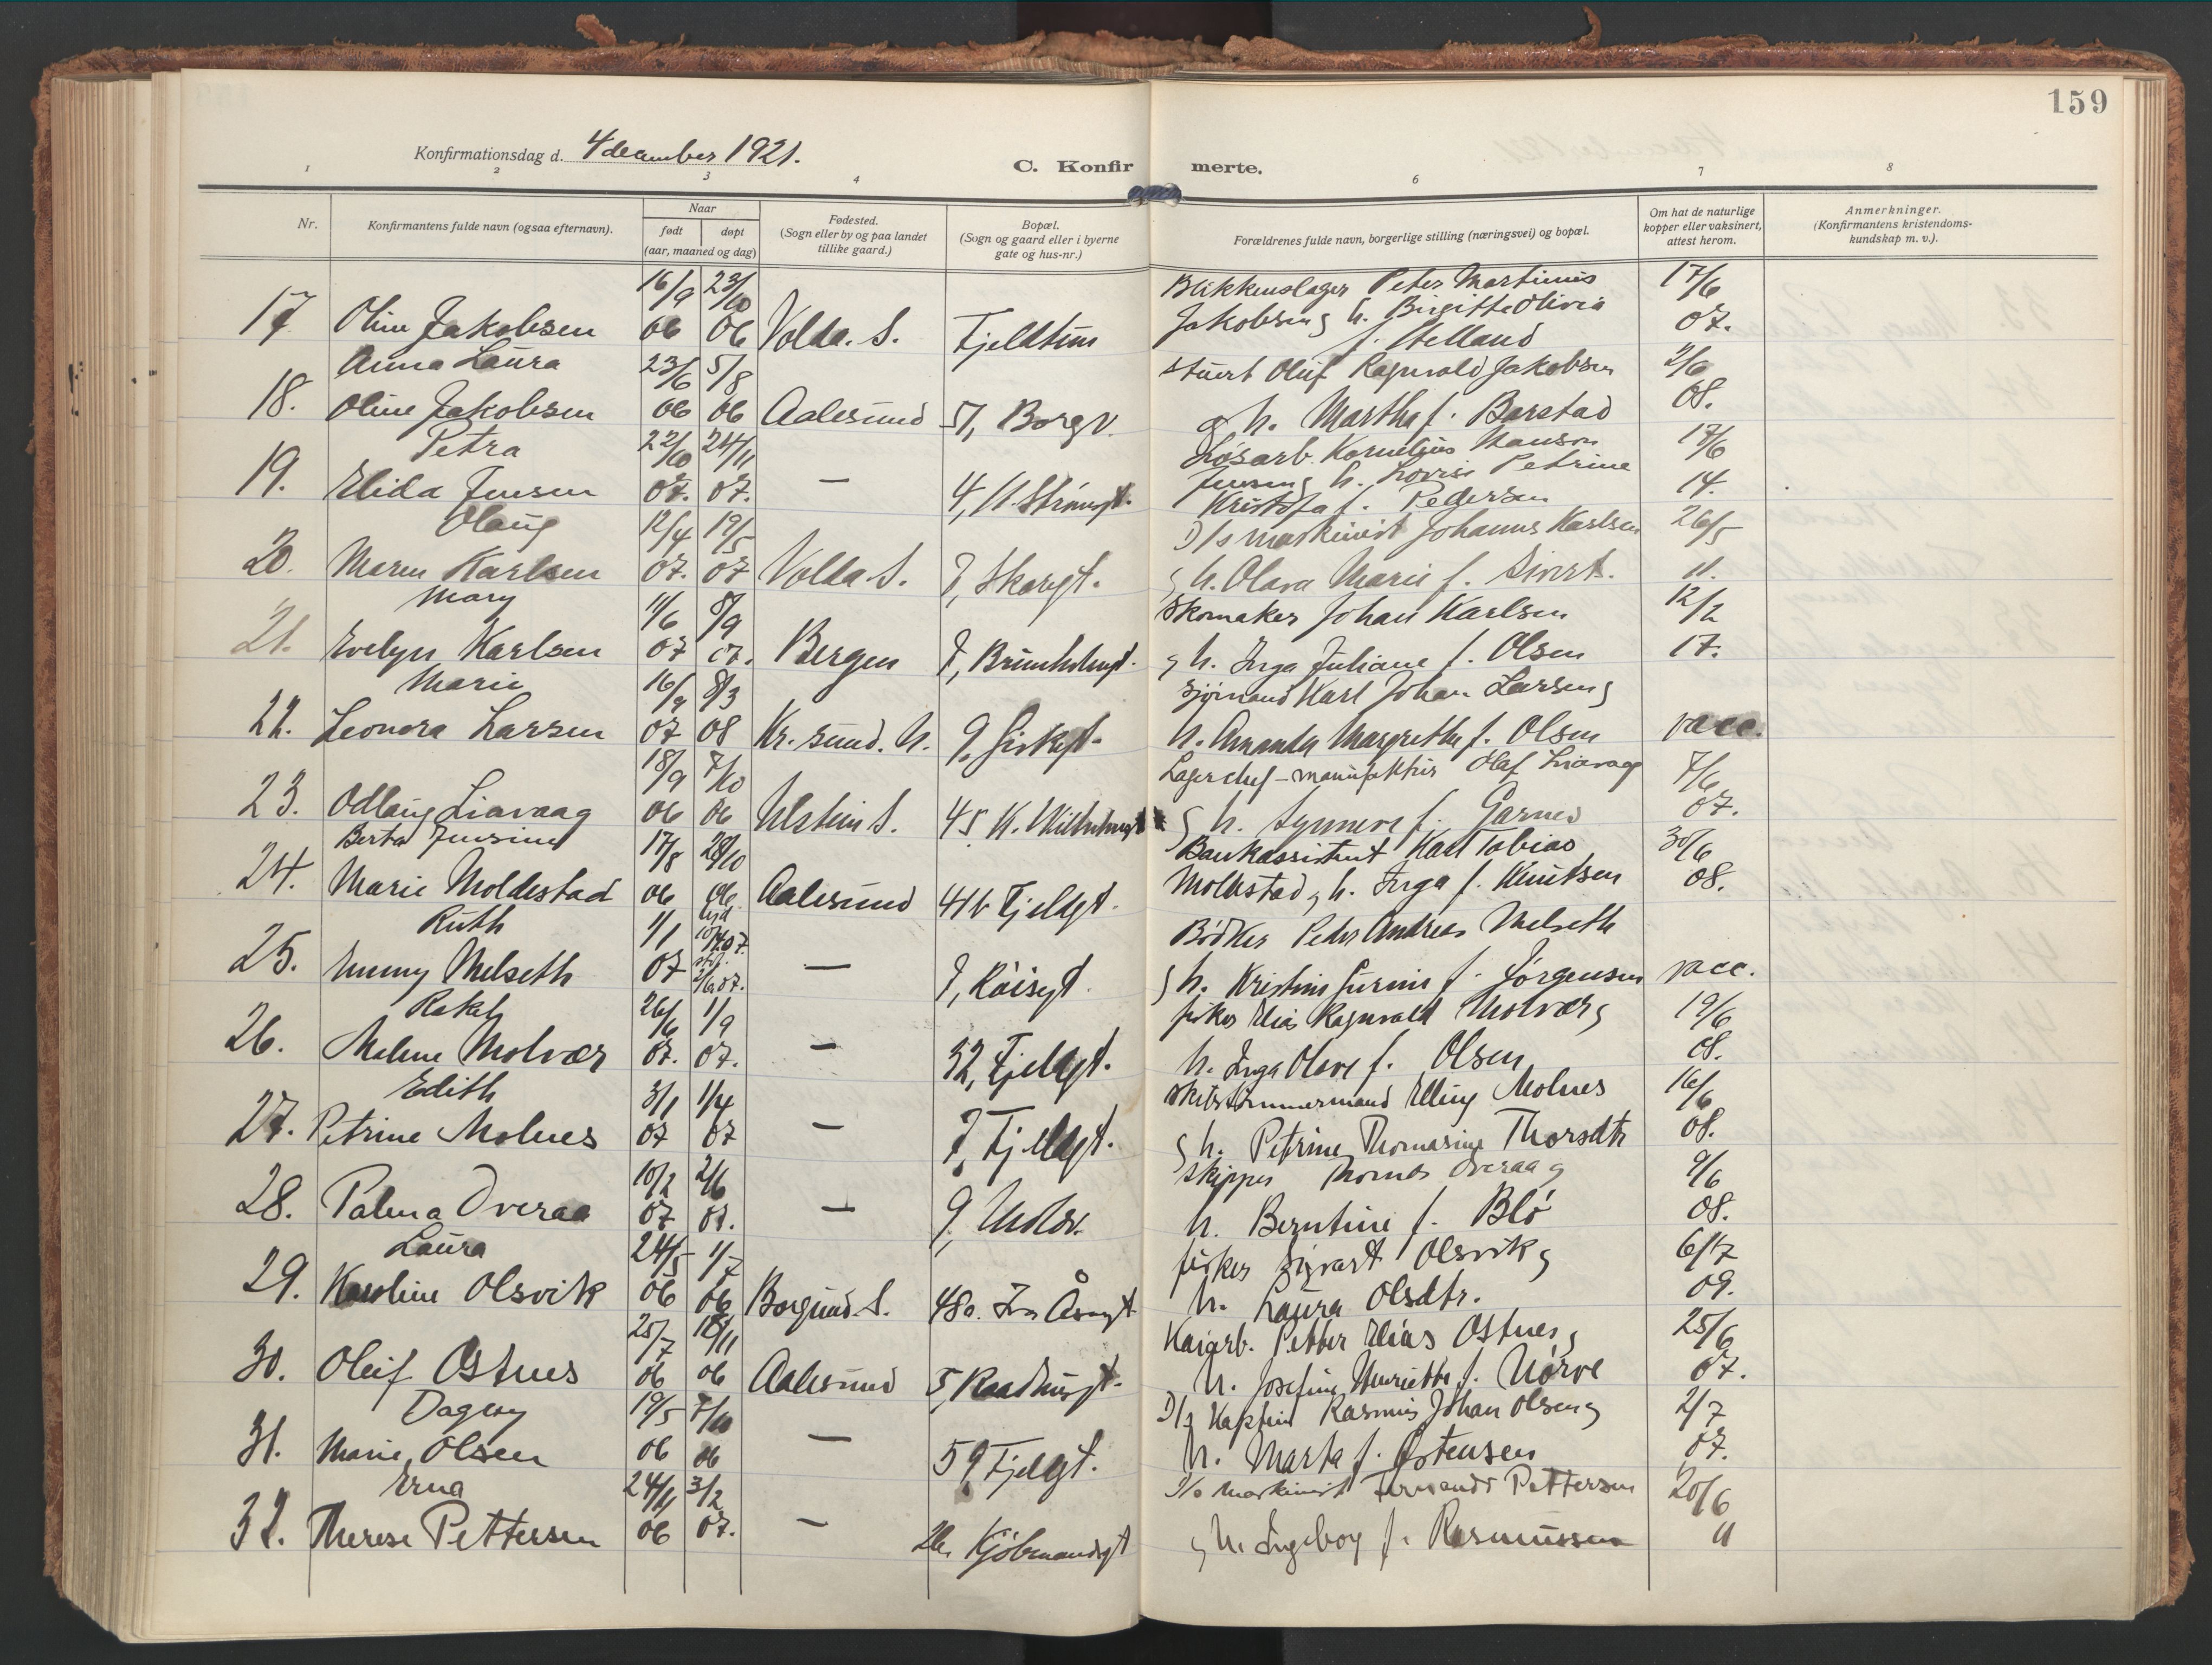 159
Konfirmationsdag d. 4 december 1921.
C. Konfirmerte.
1 2 3 4 6 7 8
Nr.
Konfirmantens fulde navn (ogsaa efternavn).
Naar
født døpt
(aar, maaned og dag)
Fødested.
(Sogn eller by og paa landet
tillike gaard.)
Bopæl.
(Sogn og gaard eller i byerne
gate og hus-nr.)
Forældrenes fulde navn, borgerlige stilling (næringsvei) og bopæl.
Om hat de naturlige
kopper eller vaksinert,
attest herom.
Anmerkninger.
(Konfirmantens kristendoms-
kundskap m. v.).
16/9 23/10 Blikkenslager Peter Martinius 17/6
17 Oline Jakobsen 06 06 Volda. S. Fjeldtun Jakobsen g h. Birgitte Olivia 07.
Anna Laura 23/6 5/8 Stuert Oluf Ragnvald Jakobsen
18. Oline Jakobsen 06 06 Aalesund 51, Borgv. g h. Martha f. Barstad 08.
Petra 22/10 24/11 Løsarb. Kornelius Hanson 17/6
19. Elida Jensen 07. 07. — 4, N. Strømgt. Jensen g h. Lovise Petrine 14.
Kristofa f. Pedersen
Olaug 12/4 19/5 D/s maskinist Johannes Karlsen 26/5
20. Maren Karlsen 07. 07 Volda S. 7, Skaregt. g h. Olava Marie f. Sivert. 11.
Mary 11/6 8/9 Skomaker Johan Karlsen 12/2
21. Evelyn Karlsen 07 07. Bergen 7, Brunholmgt. g h. Inga Juliane f. Olsen 17.
Marie 16/9 8/3 Sjømand Karl Johan Larsen g
22. Leonora Larsen 07 08 Kr. sund. N. 9, Giskegt. h. Amanda Margrethe f. Olsen vacc.
18/9 7/10 Lagerchef - manufaktur Olaf Liavaag 7/6
23. Odlaug Liavaag 06 06 Ulstein S. 45 K. Wilhelmsgt g h. Synneve f. Garnes 07.
Berta Jensine 17/8 28/10 Bankassistent Karl Tobias 30/6
24. Marie Moldestad 06 06 Aalesund 41b Fjeldgt. Moldestad g h. Inga f. Knutsen 08.
Ruth 1/1 Bødker Peder Andreas Melseth
25. Emmy Melseth 07 — 7, Røisegt. g h. Kristine f. Jørgensen vacc.
Rakel 26/6 1/9 fisker Elias Ragnvald Molvær g 19/6
26. Malene Molvær 07. 07. — 32, Fjeldgt. h. Inga Olave f. Olsen 08.
Edith 3/1 1/4 Skibstømmermand Elling Molnes 16/6
27. Petrine Molnes 07 07 — 7, Fjeldgt. g h. Petrine Thomasine Thorsdtr 08.
10/2 2/6 skipper Thomas Overaa g 9/6
28. Palma Overaa 07 07. — 9, h. Berntine f. Blø 08.
Laura 24/5 1/7 fisker Sigvart Olsvik g 6/7
29. Karoline Olsvik 06 06 Borgund. S. 48a. Iv. Åsengt h. Laura Olsdtr. 09.
25/7 18/11 Kaiarb. Petter Elias Ostnes g 25/6
30. Oleif Ostnes 06 06 Aalesund 5, Raadhusgt. h. Josefine Henriette f. Nørve 07.
Dagny 19/5 7/10 D/s Kaptein Rasmus Johan Olsen g 2/7
31. Marie Olsen 06 06 — 59 Fjeldgt. h. Marta f. Østensen 07.
Erna 24/11 3/2 D/s maskinist Pettersen 20/6
32. Therese Pettersen 06 07. — Kjøbmandsgt g h. Ingeborg f. Rasmussen 11